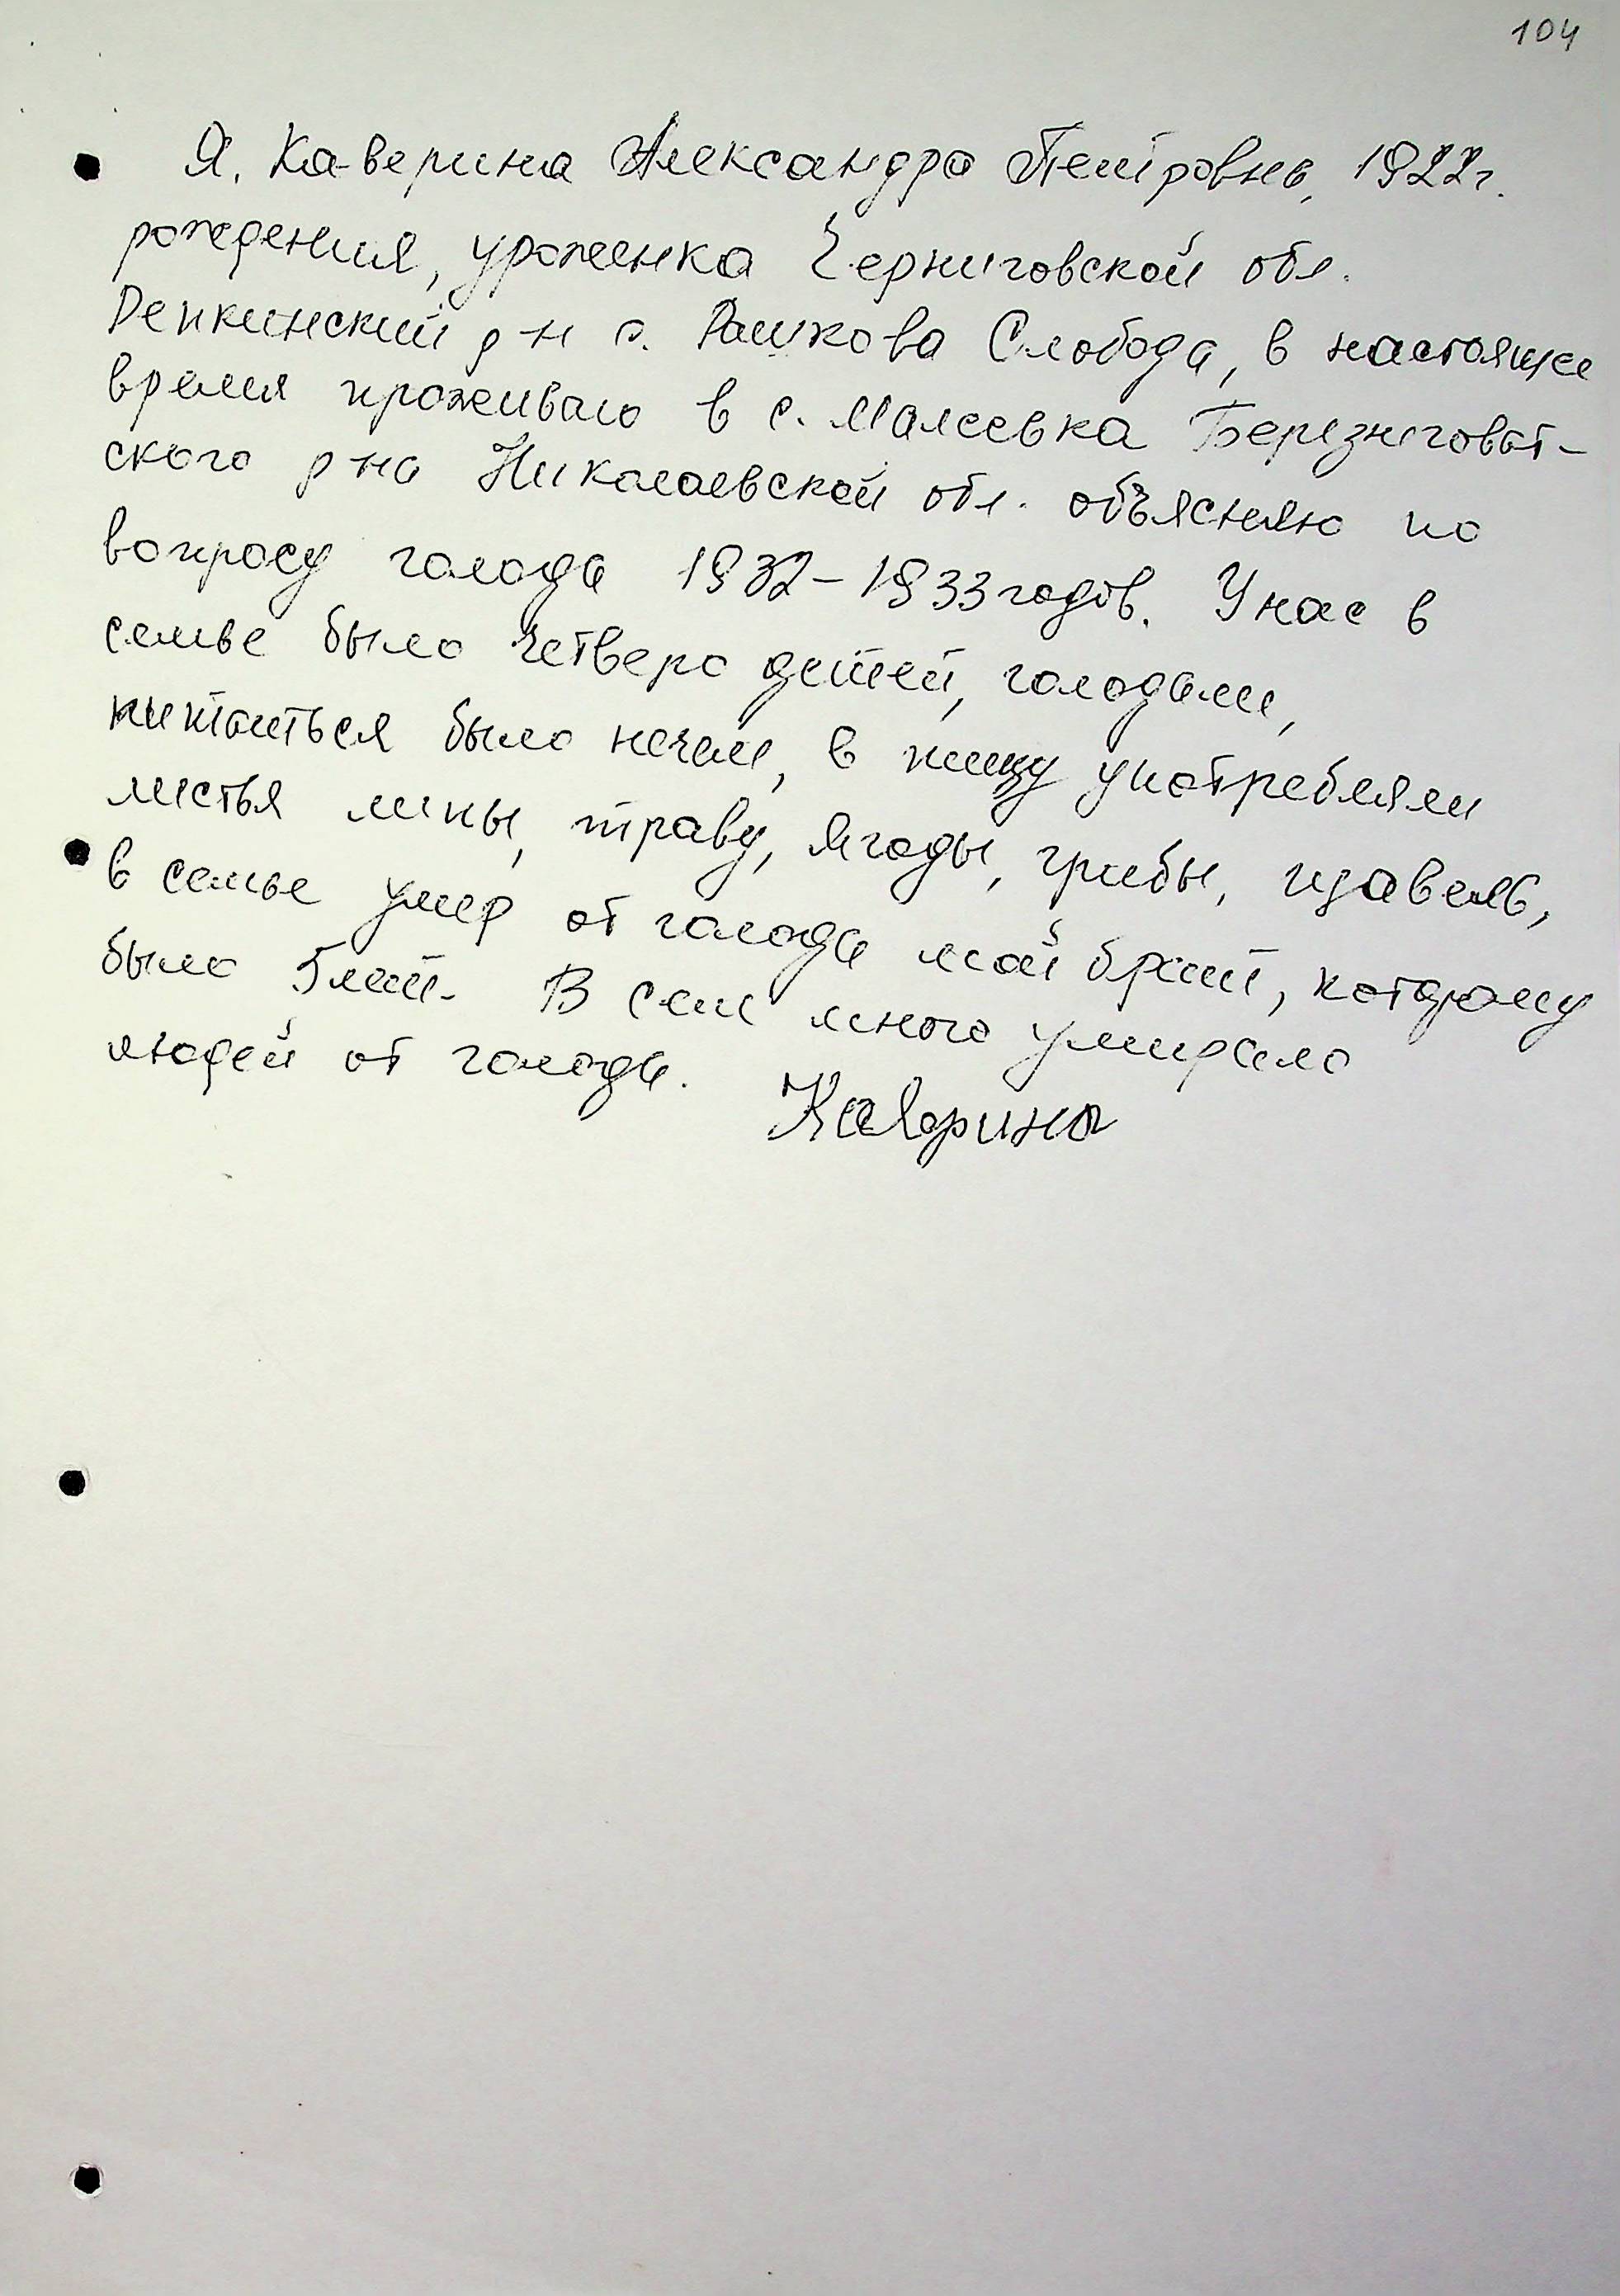 104
Я, Каверина Александра Петровна, 1922г.
рождения, уроженка Черниговской обл.
Репкинский р-н с. Рашкова Слобода, в настоящее
время проживаю в с. Малеевка Березнеговат-
ского р-на Николаевской обл. объясняю по
вопросу голода 1932-1933 годов. У нас в
семье было четверо детей, голодали,
питаться было нечем, в пищу употребляли
листья липы, траву, ягоды, грибы, щавель,
в семье умер от голода мой брат, которому
было 5 лет. В селе много умирало
людей от голода.
Каверина